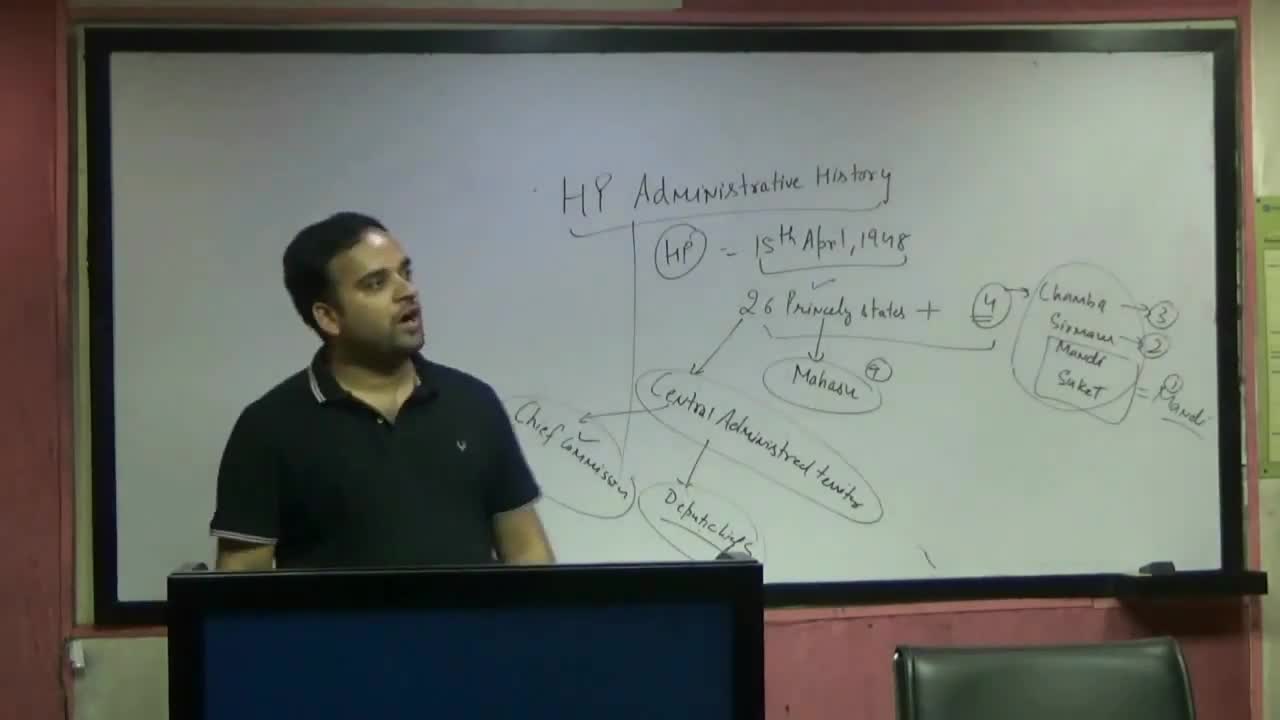 HP Administrative History
HP = 15th April, 1948
26 Princely states + 4
Chamba 3
Sirmaur 2
Mandi
Suket = Mandi 1
Mahasu
Central Administred territory
Chief Commission